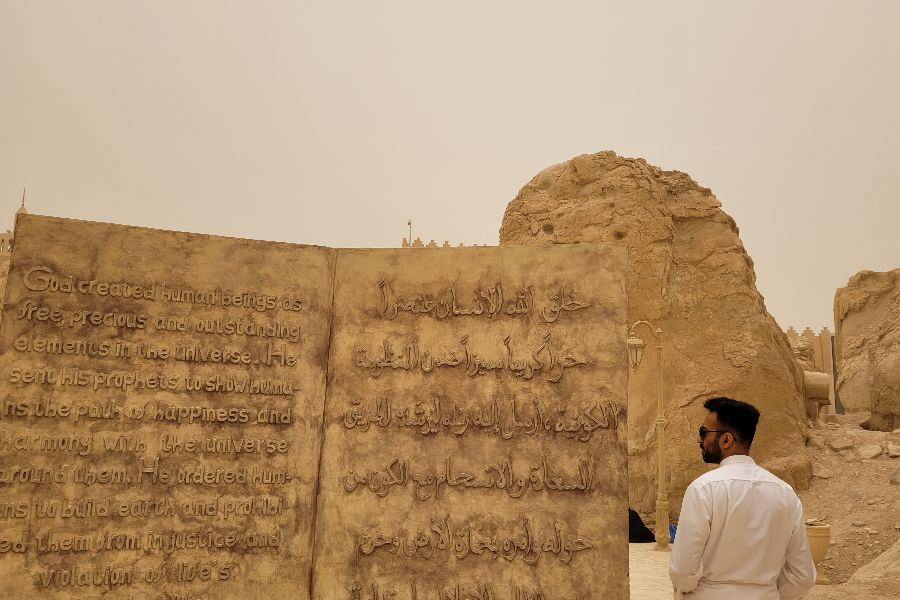 God created human beings as
free, precious and outstanding
elements in the universe. He
sent his prophets to show huma-
ns the path of happiness and
harmony with the universe
around them. He ordered hum-
ans to build earth and prohibi-
ed them from injustice and
violation of live's.
خلق الله الإنسان
حراً كريماً
الكون
السعادة والانسجام مع الكون من
حوله وأمره الأرض